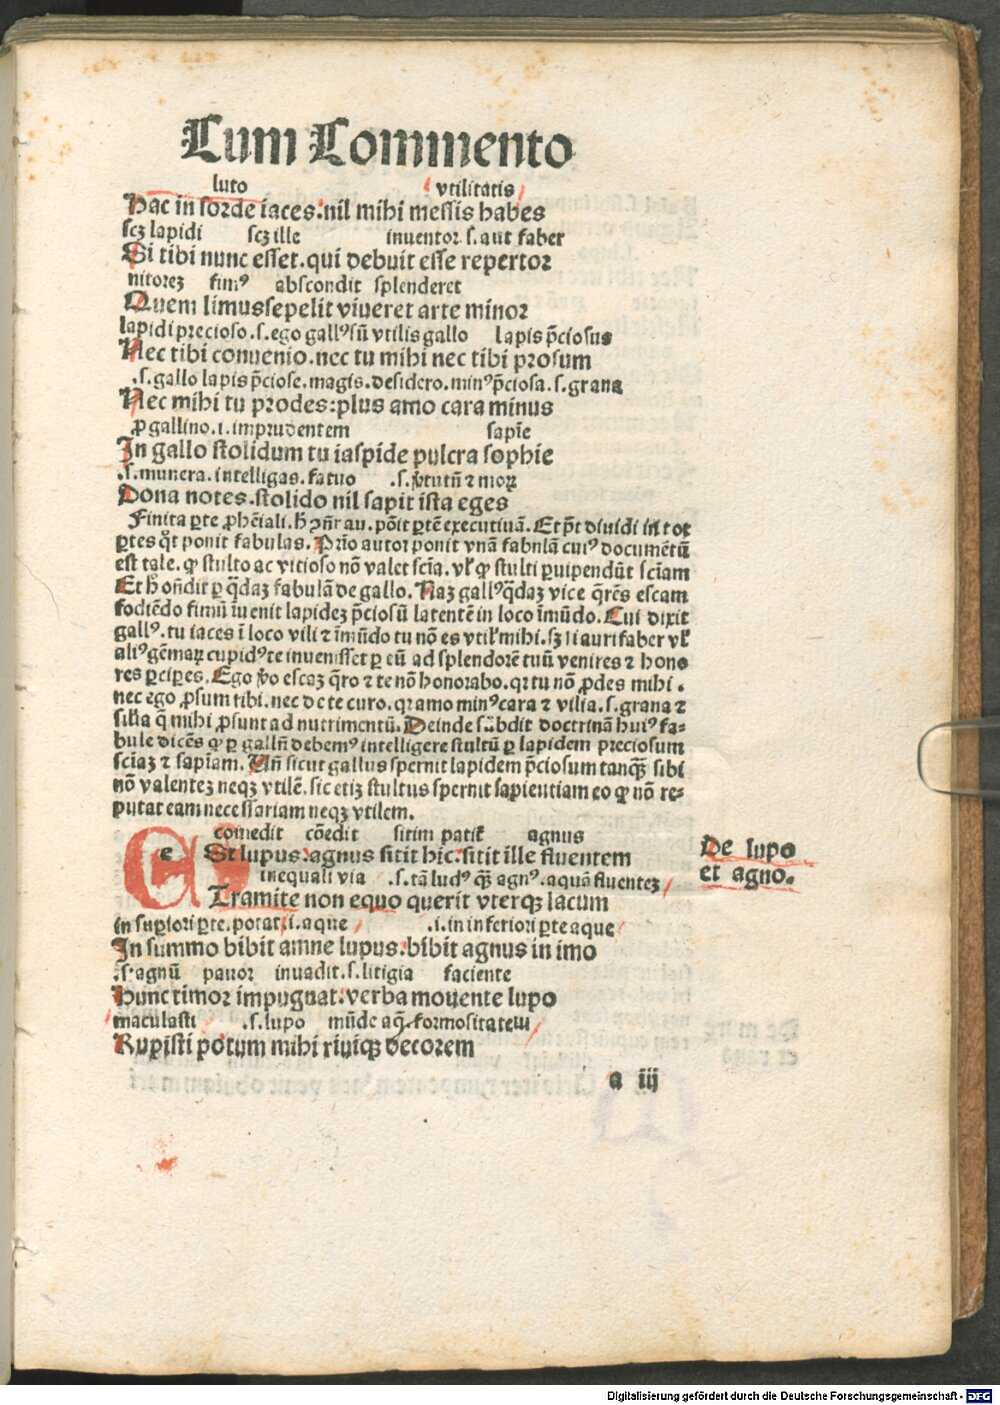 Cum Commento
luto vtilitatis
Hac in sorde iaces: nil mihi messis habes
scꝫ lapidi scꝫ ille inuentor .s. aut faber
Si tibi nunc esset. qui debuit esse repertor
nitorez fimꝰ abscondit splenderet
Quem limus sepelit viueret arte minor
lapidi precioso .s. ego gallꝰ sū vtilis gallo lapis p̄ciosus
Nec tibi conuenio. nec tu mihi nec tibi prosum
.s. gallo lapis p̄ciose. magis. desidero. minꝰ p̄ciosa .s. grana
Nec mihi tu prodes: plus amo cara minus
ꝓ gallino .i. imprudentem sapīe
In gallo stolidum tu iaspide pulcra sophie
.s. munera. intelligas. fatuo .s. v̓tutū ⁊ moꝝ
Dona notes. stolido nil sapit ista eges
Finita ꝑte ꝓhēiali. hꝰ au. pōit ꝑtē executiuā. Et pōt diuidi in tot
ꝑtes qͦt ponit fabulas. Prīo autor ponit vnā fabulā cuiꝰ documētū
est tale. qꝙ stulto ac vitioso nō valet scīa. vl̓ qꝙ stulti ꝑuipendūt scīam
Et hͦ ōndit ꝑ qͣdaꝫ fabulā de gallo. Naꝫ gallꝰ qͥdaꝫ vice q̄rēs escam
fodiēdo fimū īuenit lapidez p̄ciosū latentē in loco īmūdo. Cui dixit
gallꝰ. tu iaces ī loco vili ⁊ īmūdo tu nō es vtil̓ mihi. sꝫ si aurifaber vl̓
aliꝰ gēmaꝝ cupidꝰ te inuenisset ꝑ eū ad splendorē tuū venires ⁊ hono
res ꝑciꝑes. Ego v̓o escaꝫ q̄ro ⁊ te nō honorabo. qꝛ tu nō ꝓdes mihi.
nec ego ꝓsum tibi. nec de te curo. qꝛ amo minꝰ cara ⁊ vilia .s. grana ⁊
silia q̄ mihi ꝓsunt ad nutrimentū. Deinde sūbdit doctrinā huiꝰ fa⸗
bule dicēs qꝙ ꝑ gallū debemꝰ intelligere stultū ꝑ lapidem preciosum
sciaꝫ ⁊ sapīam. Vn̄ sicut gallus spernit lapidem p̄ciosum tanqꝫ sibi
nō valentez neqꝫ vtilē. sic etiꝫ stultus spernit sapientiam eo qꝙ nō re⸗
putat eam necessariam neqꝫ vtilem.
comedit cōedit sitim patit̄ agnus
e St lupus: agnus sitit hic: sitit ille fluentem
De lupo
et agno.
inequali via .s. tā ludꝰ qͣꝫ agnꝰ. aquā fluentez
Tramite non equo querit vterqꝫ lacum
in suꝑiori ꝑte. potat .i. aque .i. in inferiori ꝑte aque
In summo bibit amne lupus: bibit agnus in imo
.s. agnū pauor inuadit .s. litigia faciente
Hunc timor impugnat: verba mouente lupo
maculasti .s. lupo mūde aq̄. formositatem
Rupisti potum mihi riuiqꝫ decorem
a iij
Digitalisierung gefördert durch die Deutsche Forschungsgemeinschaft - DFG